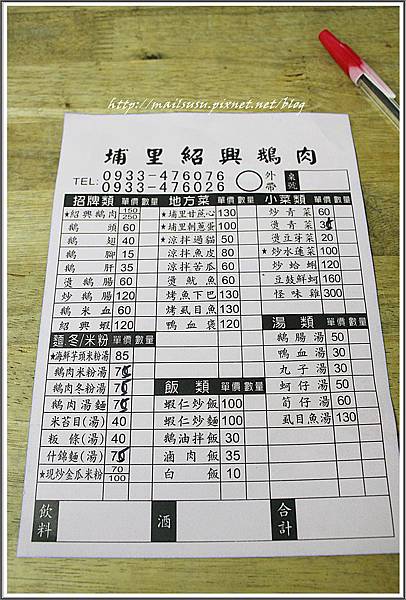 http://mailsusu.pixnet.net/blog
埔里紹興鵝肉
TEL: 0933-476076
0933-476026
外帶
桌號
招牌類 單價 數量
★紹興鵝肉 150/250
鵝頭 60
鵝翅 40
鵝腳 15
鵝肝 35
燙鵝腸 60
炒鵝腸 120
鵝米血 60
紹興蝦 120
麵冬/米粉 單價 數量
★海鮮芋頭米粉湯 85
鵝肉米粉湯
鵝肉冬粉湯
鵝肉湯麵
米苔目(湯) 40
板條(湯) 40
什錦麵(湯)
★現炒金瓜米粉 70/100
地方菜 單價 數量
★埔里甘蔗心 130
★埔里刺蔥蛋 100
★涼拌過貓 50
涼拌魚皮 80
涼拌苦瓜 60
燙魷魚 60
烤魚下巴 130
烤虱目魚 130
鴨血袋 120
飯類 單價 數量
蝦仁炒飯 100
蝦仁炒麵 100
鵝油拌飯 30
滷肉飯 35
白飯 10
小菜類 單價 數量
炒青菜 60
燙青菜
燙豆芽菜 20
★炒水蓮菜 100
炒蛤蜊 120
豆鼓鮮蚵 160
怪味雞 300
湯類 單價 數量
鵝腸湯 50
鴨血湯 30
丸子湯 30
蚵仔湯 50
筍仔湯 60
虱目魚湯 130
飲料
酒
合計